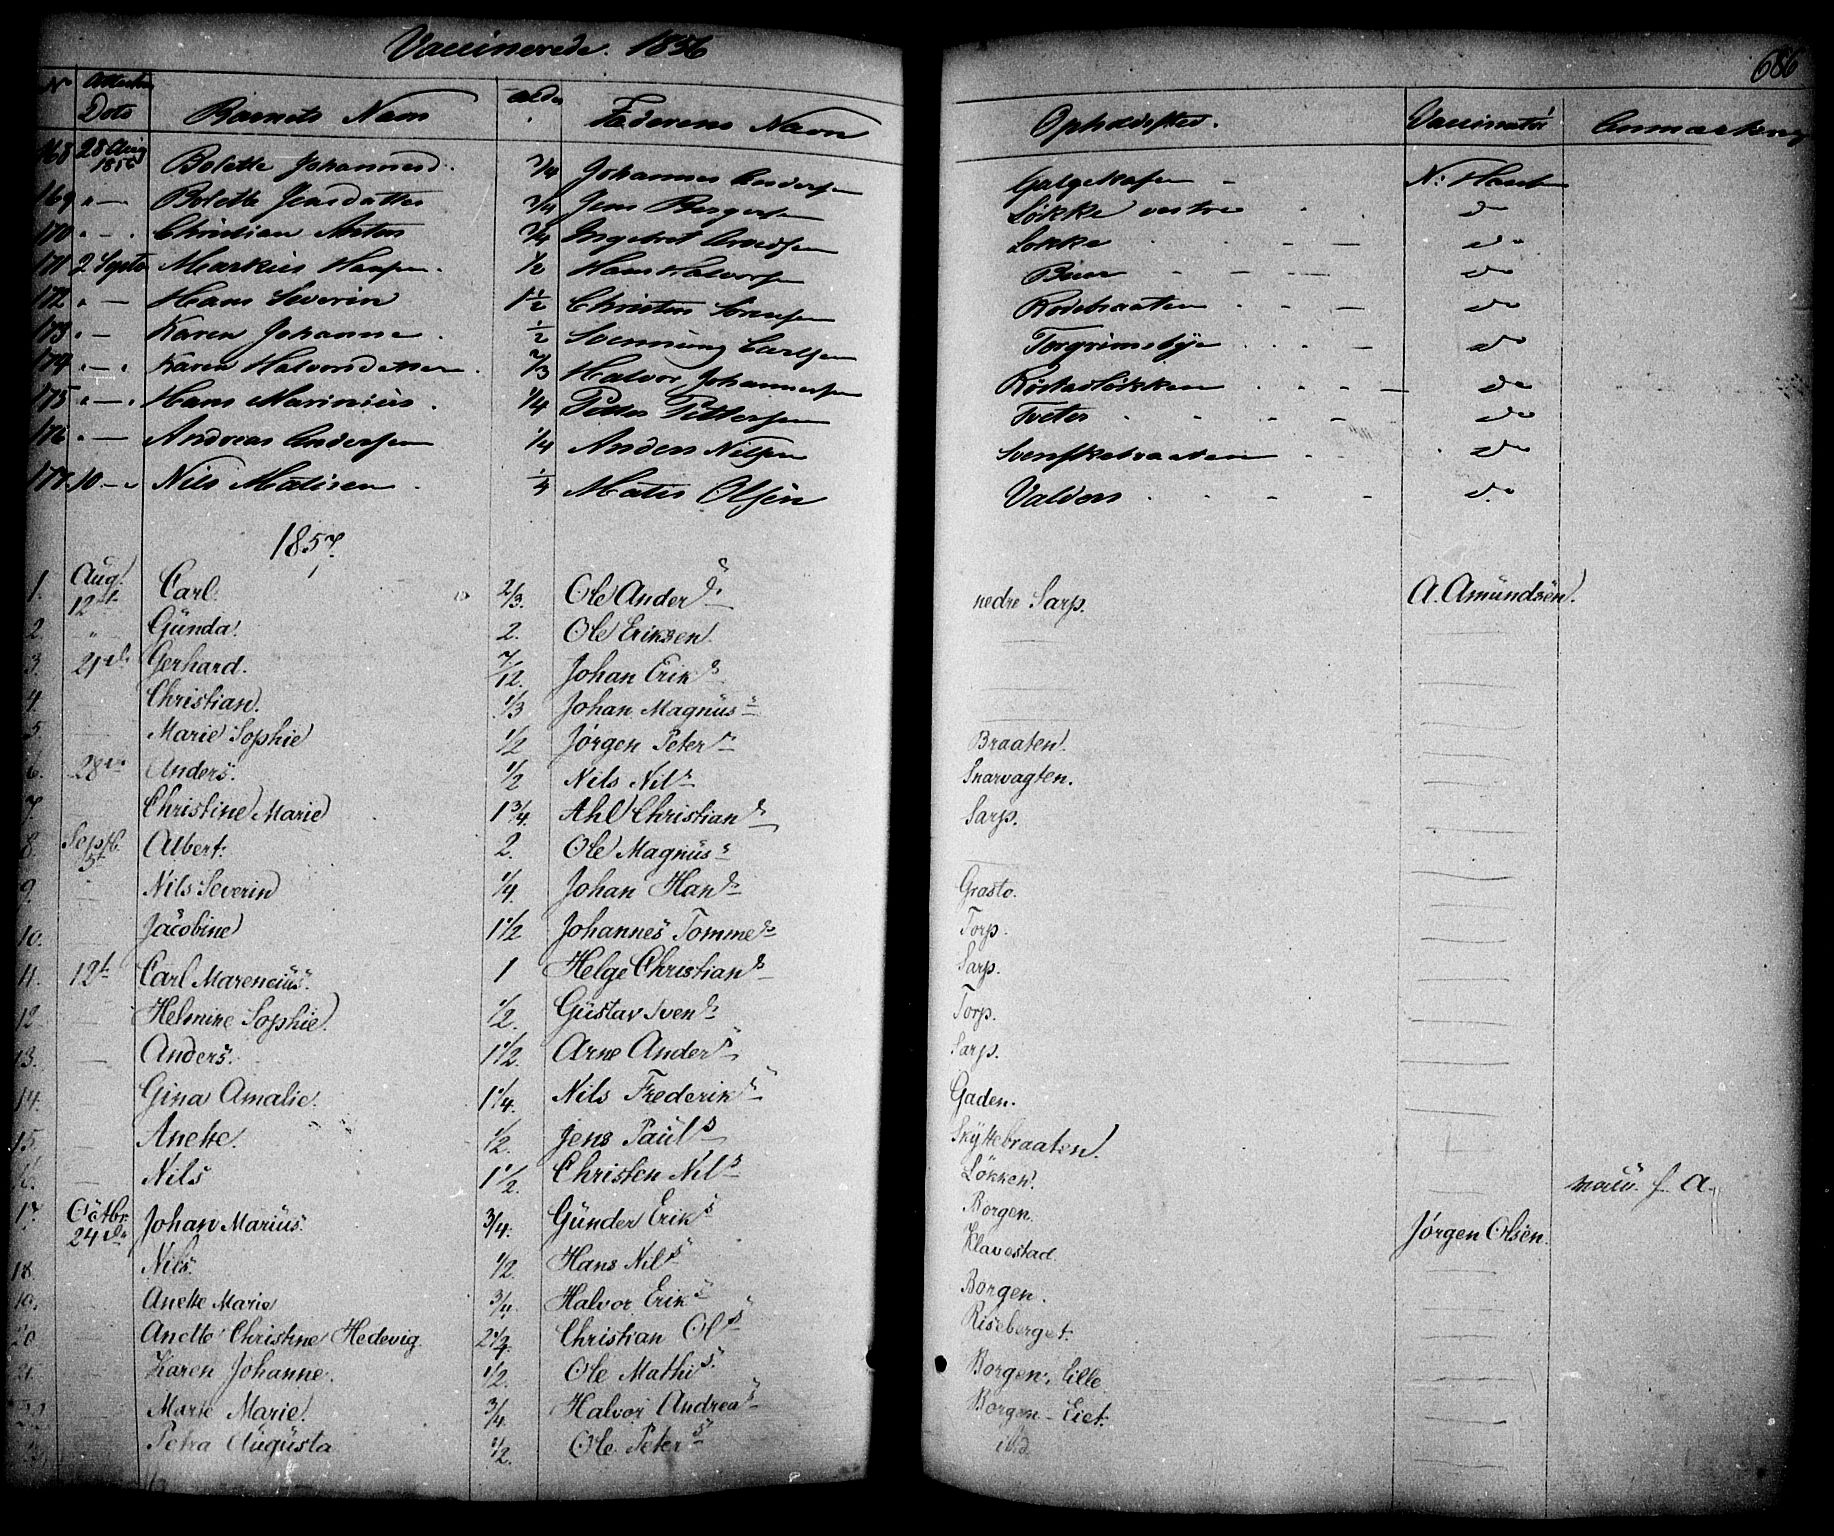 Vaccinerede. 1856
686
No Attestens Dato Barnets Navn Alder Faderens Navn Opholdssted. Vaccinatør Anmærkning
168 28 Aug 1856 Bolette Johannesd. 3/4 Johannes Andersen N: Han
169 " — Bolette Jensdatter 3/4 Jens Løkke vestre do
170 " — Christian 3/4 Ingebret Løkke do
171 2 Septb Markus Hansen. 1/2 Hans Halvorsen do
172 " — Hans Severin 1 1/2 Christen Sørensen Rødebraaten do
173 " — Karen Johanne. 1/2 Svenning Carlsen Torgrimsbye do
174 " — Karen Halvorsdatter. 2/3 Halvor Johannesen do
175 " — Hans Marinius. 1/4 Petter Pettersen Tveter do
176 " — Andreas Andersen 1/4 Anders Nilsen Svenskebraaten do
177. 10 — Nils Matisen 1/4 Matis Olsen Valders do
1857.
1. Aug. 12te Carl. 2/3. Ole Anders nedre Sarp. A. Amundsen.
2. " Gunda. 2. Ole Eriksen —
3. 21de Gerhard. 7/12. Johan Eriks —
4 Christian. 1/3 Johan Magnus —
5. Marie Sophie 1/2 Jørgen Peters Braaten.
6. 28de Anders. 1/2 Nils Nils Snarvagten.
7. Christine Marie 1 3/4. Ahl Christians Sarp.
8. Septb. 5t Albert. 2. Ole Magnus —
9. Nils Severin 1/4 Johan Hans Grasto.
10. Jacobine 1 1/2 Johannes Tommes Torp.
11. 12t Carl Marencius. 1 Helge Christians Sarp.
12 Helmine Sophie. 1/2 Gustav Svens Torp.
13. Anders. 1 1/2. Arne Anders Sarp.
14. Gina Amalie. 1 1/4. Nils Frederiks Gaden.
15. Anette. 1/2. Jens Pauls Skyttebraaten.
16. Nils 1 1/2. Christen Nils Løkken. natu. f. A.
17. Octbr. 24de Johan Marius. 3/4. Gunder Eriks Borgen. Jørgen Olsen.
18. Nils. 1/2. Hans Nils Klavestad.
19. Anette Marie 3/4. Halvor Eriks Borgen.
20 Anette Christine Hedevig 2 3/4. Christian Ols Riseberget.
21 Karen Johanne. 1/2. Ole Mathis Borgen, Lille.
22. Marte Marie. 3/4. Halvor Andreas Borgen - Eiet.
23. Petra Augusta 1/2. Ole Peters ibid